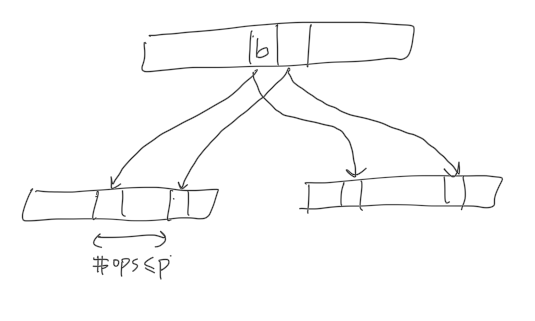 b
#ops≤p